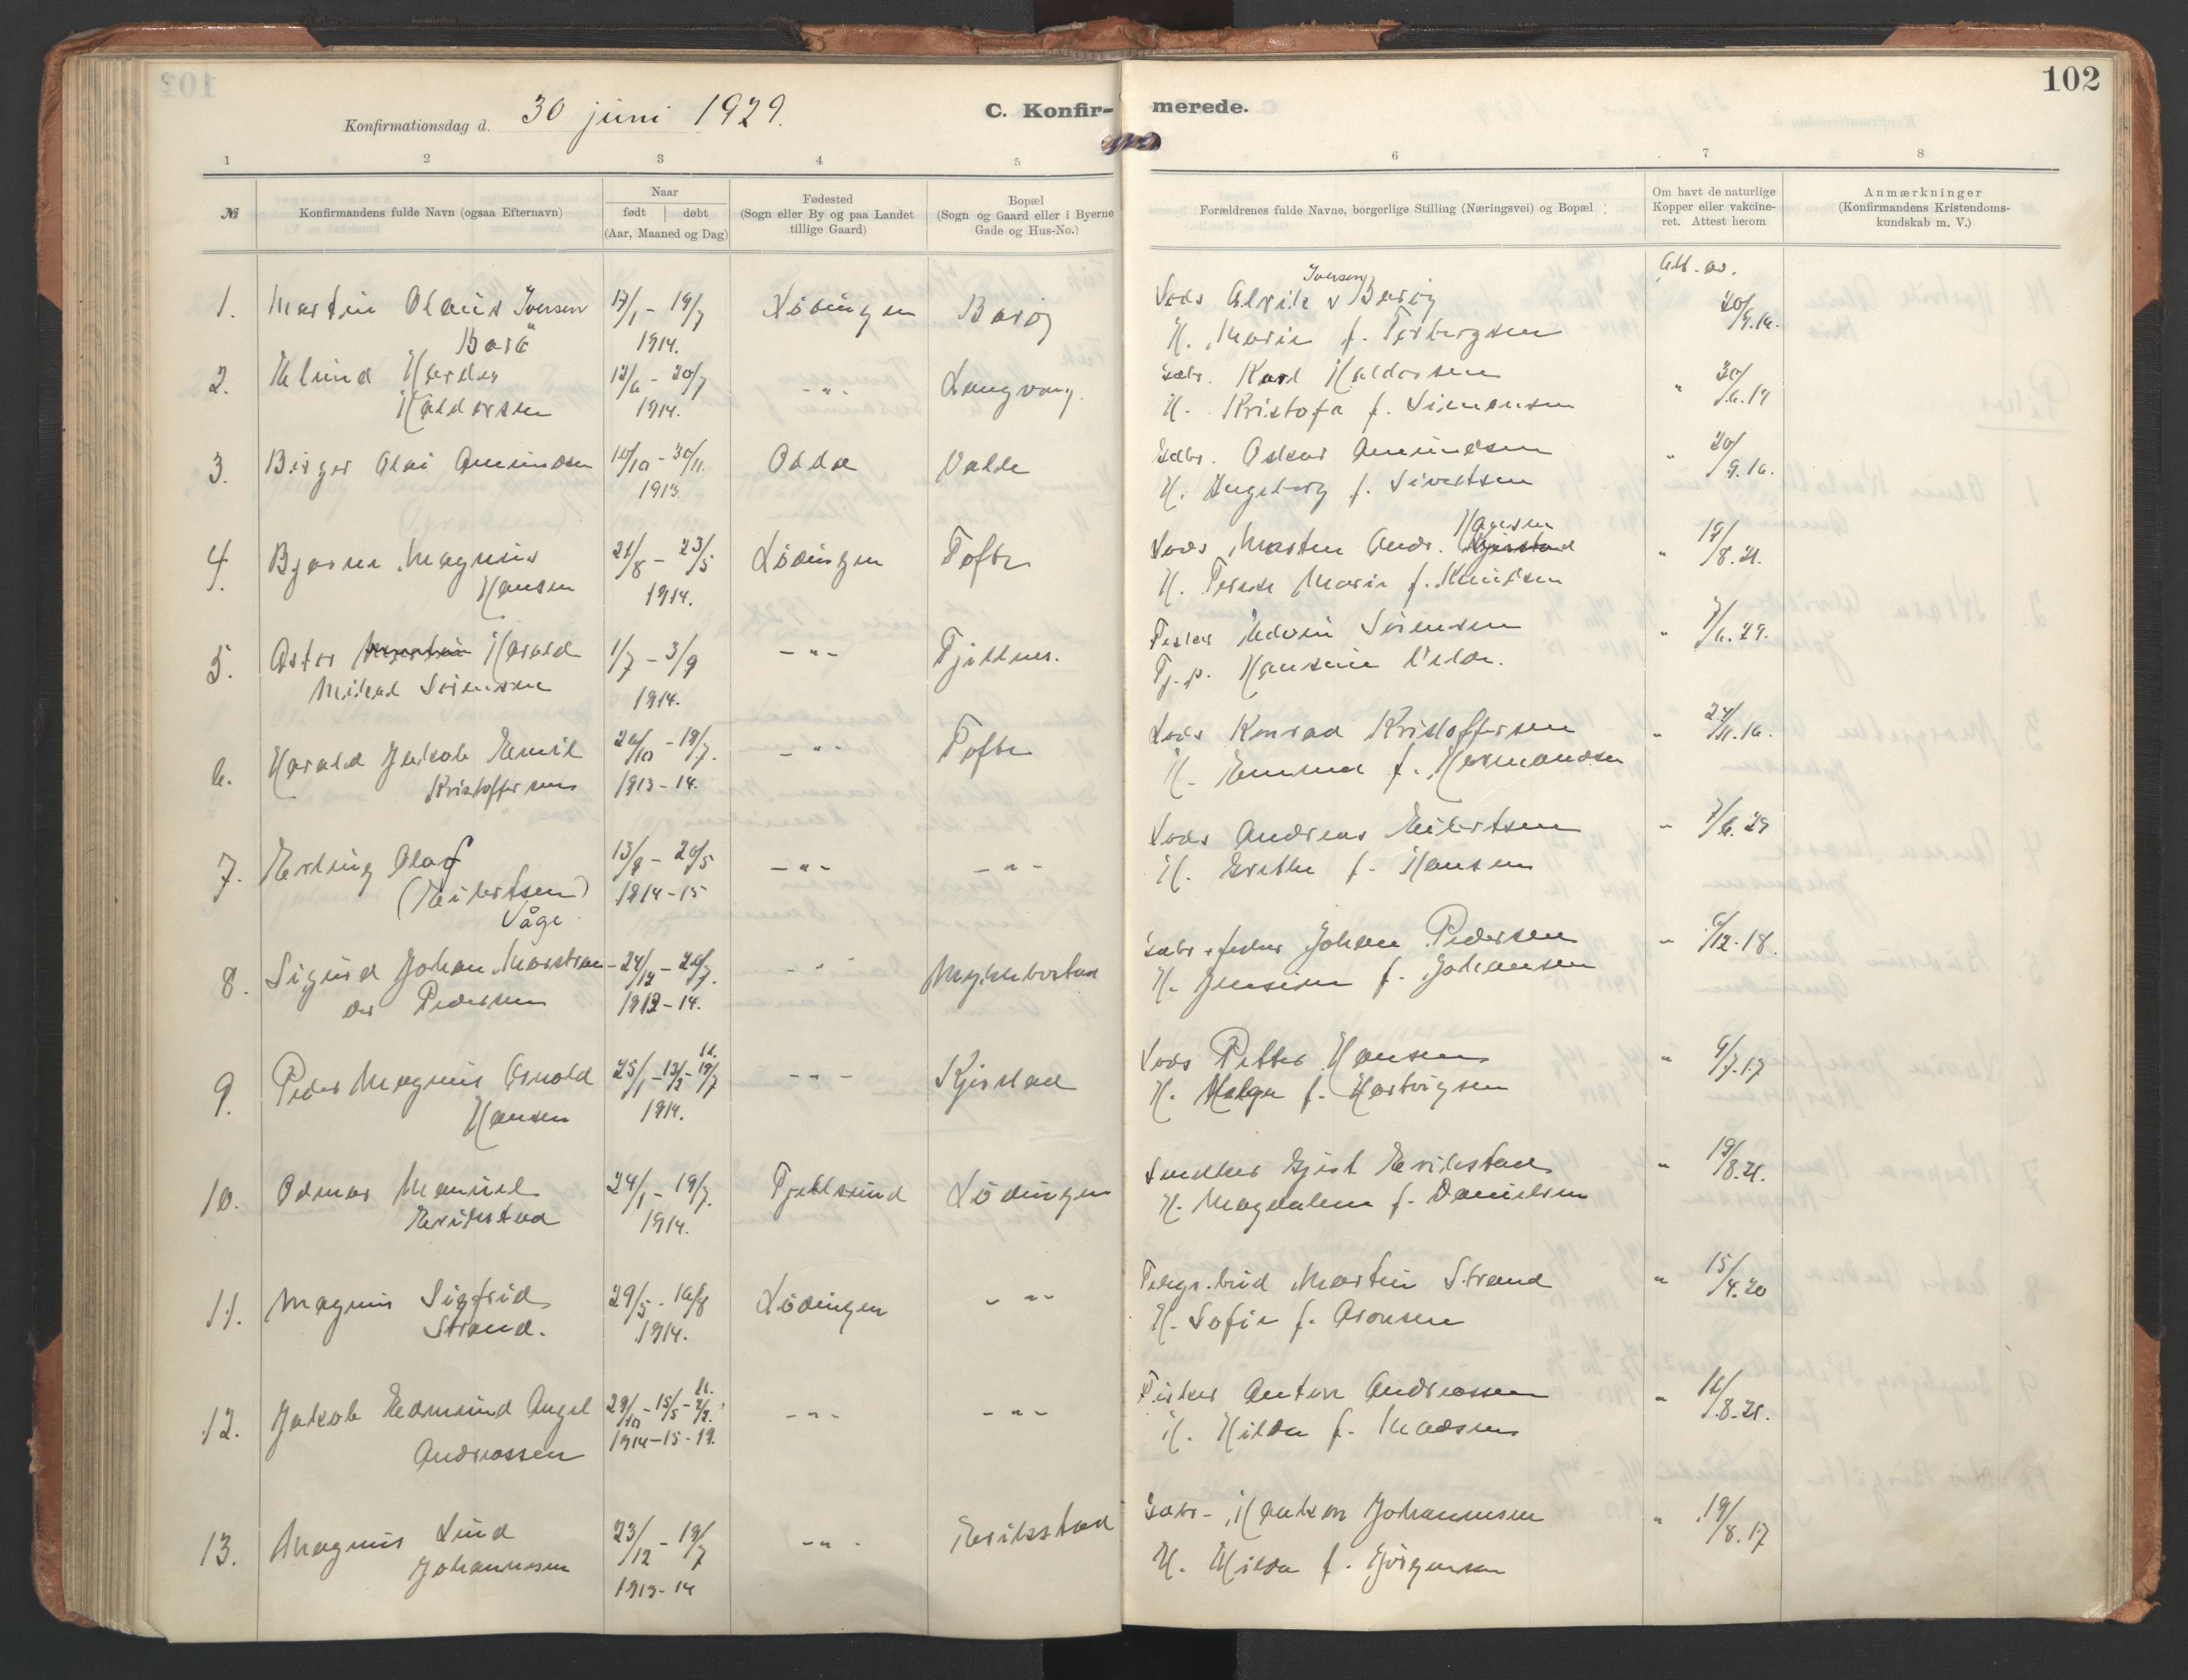 102
Konfirmationsdag d. 30 juni 1929.
C. Konfir-
merede.
1 2 3 4 5 6 7 8
№
Konfirmandens fulde Navn (ogsaa Efternavn)
Naar
født døbt
(Aar, Maaned og Dag)
Fødested
(Sogn eller By og paa Landet
tillige Gaard)
Bopæl
(Sogn og Gaard eller i Byerne
Gade og Hus-No.)
Forældrenes fulde Navne, borgerlige Stilling (Næringsvei) og Bopæl
Om havt de naturlige
Kopper eller vakcine-
ret. Attest herom
Anmærkninger
(Konfirmandens Kristendoms-
kundskab m. V.)
Att. av.
Iversen
1. Martin Olaus Iversen 17/1 - 19/7 Lödingen Barøy Lods Alrik Barøy 20/9.16.
Barö 1914. H. Marie f. Torbergsen
2. Edmund Hardy 12/6 - 20/7 - " - Langvang. Gdbr. Karl Haldorsen " 30/6.19
Haldorsen 1914. H. Kristofa f. Simonsen
3. Birger Olai Amundsen 10/10 - 30/11. Odda Valle Gdbr. Oskar Amundsen " 20/9.16.
1913. H. Ingeborg f. Sivertsen
Hansen
4. Bjarne Magnus 21/8 - 23/5 Lödingen Tofte Lods Morten Andr. Kjerstad " 17/8.21.
Hansen 1914. H. Terese Marie f. Knudsen
5. Astor Martin Harald 1/7 - 3/9 - " - Fjellnes. Fisker Edvin Sörensen " 7/6.29.
Mikal Sörensen 1914. Tj.p. Hansine
6. Harald Jakob Emil 26/10 - 19/7. - " - Tofte Lods Konrad Kristoffersen " 24/11.16.
Kristoffersen 1913 - 14. H. Emma f. Hermandsen
7. Erling Olaf 13/9 - 20/5 - " - - " - Lods Andreas Eilertsen " 7/6.29
(Eilertsen) 1914 - 15 H. Grethe f. Hansen
Våge
8. Sigurd Johan Marstran- 24/12 - 20/7. - " - Myklebostad Gdbr. + fisker Johan Pedersen " 6/12.18.
der Pedersen 1913 - 14. H. Jensine f. Johansen
9. Peder Magnus Arnold 25/1 - 13/2 - 19/7 - " - Kjerstad Lods Petter Hansen " 9/7.17
Hansen 1914. H. Helga f. Hartvigsen
10. Odmar Manuel 24/1 - 19/7. Tjeldsund Lödingen Snedker Gjert Erikstad " 19/8.21.
Erikstad 1914. H. Magdalene f. Danielsen
11. Magnus Sigfrid 29/5 - 16/8 Lödingen - " - Telegr.bud Martin Strand " 15/4.20
Strand. 1914. H. Sofie f. Aronsen
12. Jakob Edmund Angel 29/10 - 15/5 - - " - - " - Fisker Anton Andreassen " 16/8.21.
Andreassen 1914 - 15 - 19. H. Hilda f. Madsen
13. Magnus Lind 23/12 - 19/7 - " - Erikstad Gdbr. Haakon Johannesen " 19/8.17
Johannesen 1913 - 14 H. Hilda f. Jörgensen